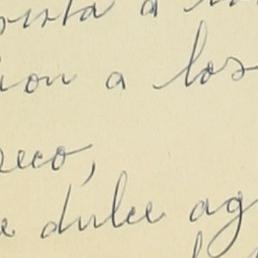 a
ion a los
reco,
e dulce ag